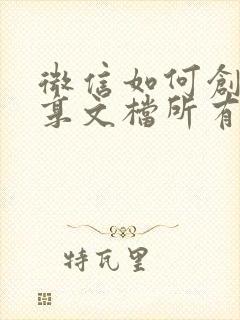 微信如何創
享文檔所有
特瓦里